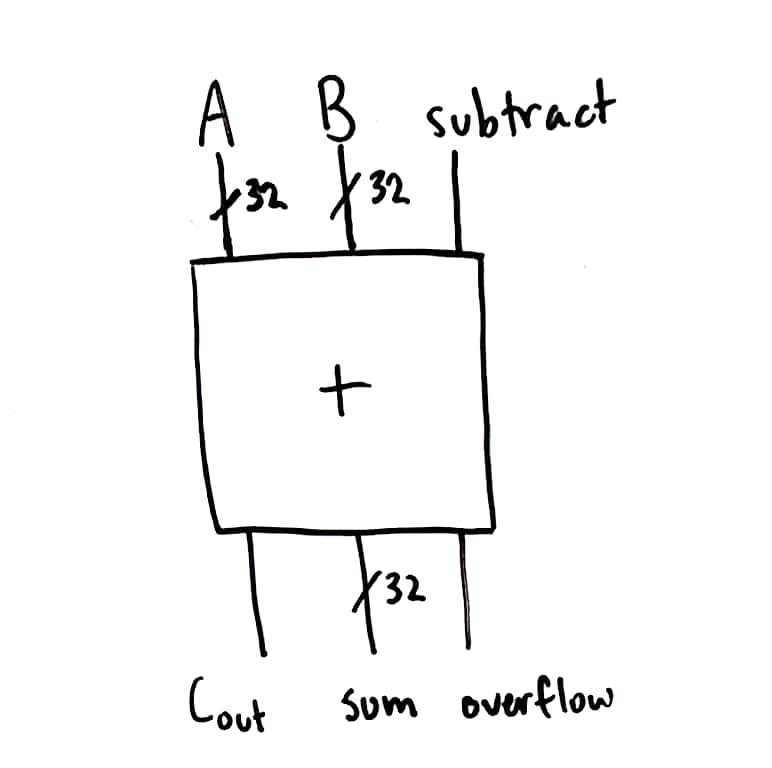 A B subtract
32 32
+
32
Cout sum overflow